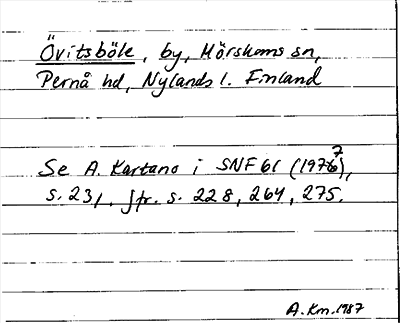 Övitsböle, by, Mörskoms sn,
Pernå hd, Nylands l. Finland
Se A. Kartano i SNF 61 (1977),
s. 231. Jfr. s. 228, 264, 275.
A.Km.1987